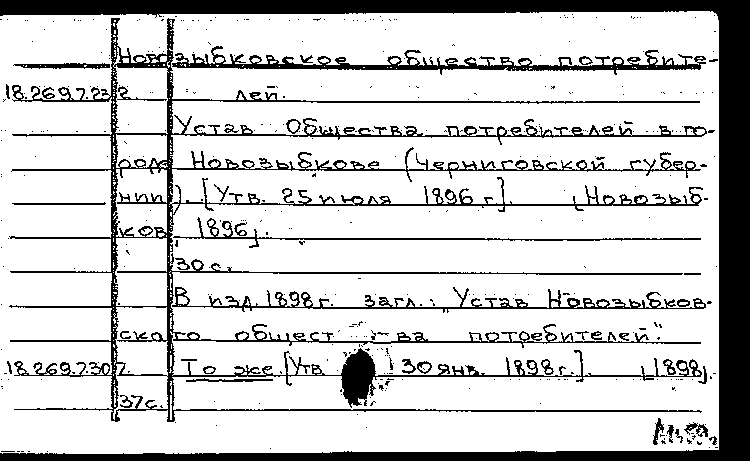 Новозыбковское общество потребите-
18.269.7.232. лей.
Устав Общества потребителей в го-
роде Новозыбкове (Черниговской губер-
нии). [Утв. 25 июля 1896 г]. [Новозыб-
ков, 1896].
30 с.
В изд. 1898 г. загл.: "Устав Новозыбков-
ского общества потребителей".
18.269.7.307. То же. [Утв. 30 янв. 1898 г.]. [1898].
37 с.